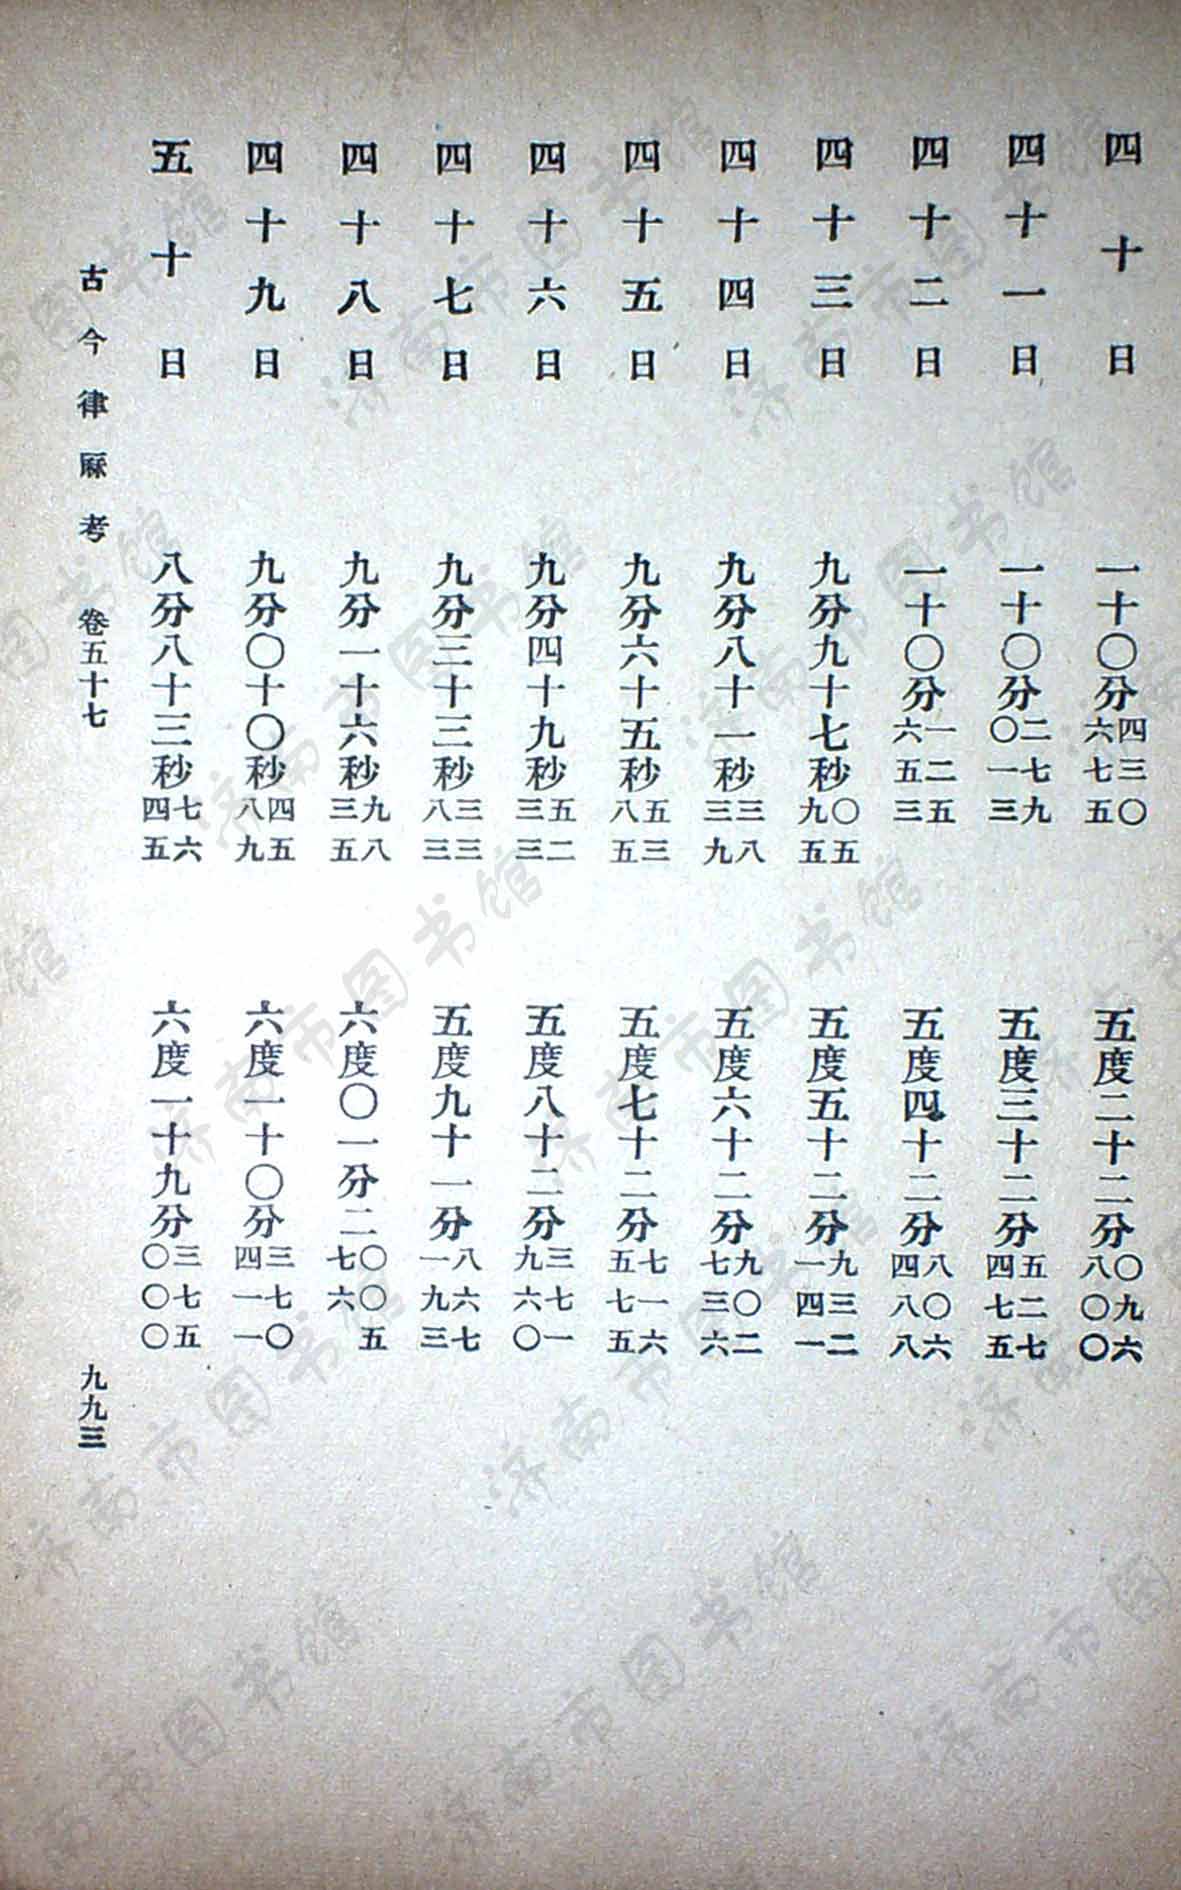 四十日 一十〇分四三〇六七五 五度二十二分〇九六八〇〇
四十一日 一十〇分二七九〇一三 五度三十二分五二七四七五
四十二日 一十〇分一二五六五三 五度四十二分八〇六四八八
四十三日 九分九十七秒〇五九五 五度五十二分九三二一四一
四十四日 九分八十一秒三八三九 五度六十二分九〇二七三六
四十五日 九分六十五秒五三八五 五度七十二分七一六五七五
四十六日 九分四十九秒五二三三 五度八十二分三七一九六〇
四十七日 九分三十三秒三三八三 五度九十一分八六七一九三
四十八日 九分一十六秒九八三五 六度〇一分二〇〇五七六
四十九日 九分〇十〇秒四五八九 六度一十〇分三七〇四一一
五十日 八分八十三秒七六四五 六度一十九分三七五〇〇〇
古今律厤考 卷五十七 九九三
济南市图书馆